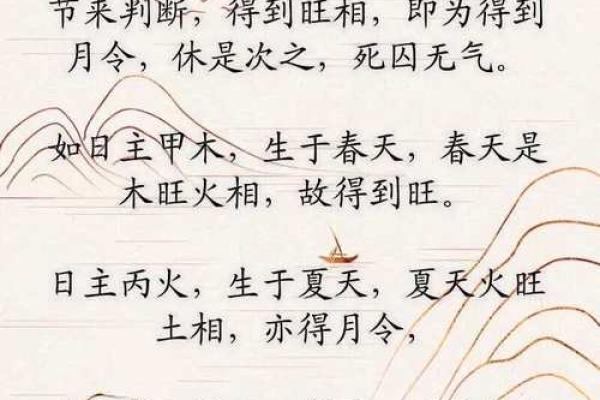 节来判断，得到旺相，即为得到
月令，休是次之，死囚无气。
如日主甲木，生于春天，春天是
木旺火相，故得到旺。
日主丙火，生于夏天，夏天火旺
土相，亦得月令，